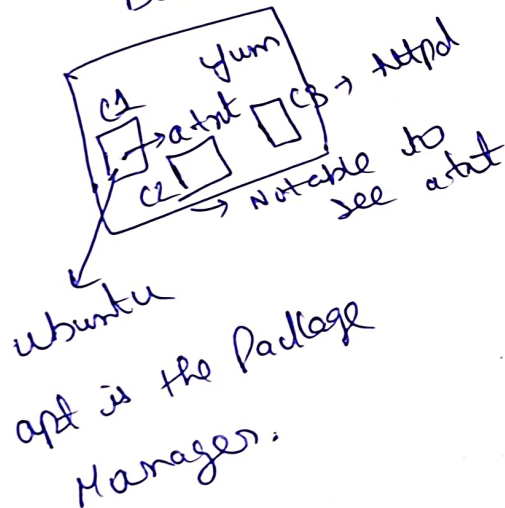 yum
C1
→ a.txt
C3 → httpd
C2
→ Notable to
see a.txt
ubuntu
apt is the Package
Manager.